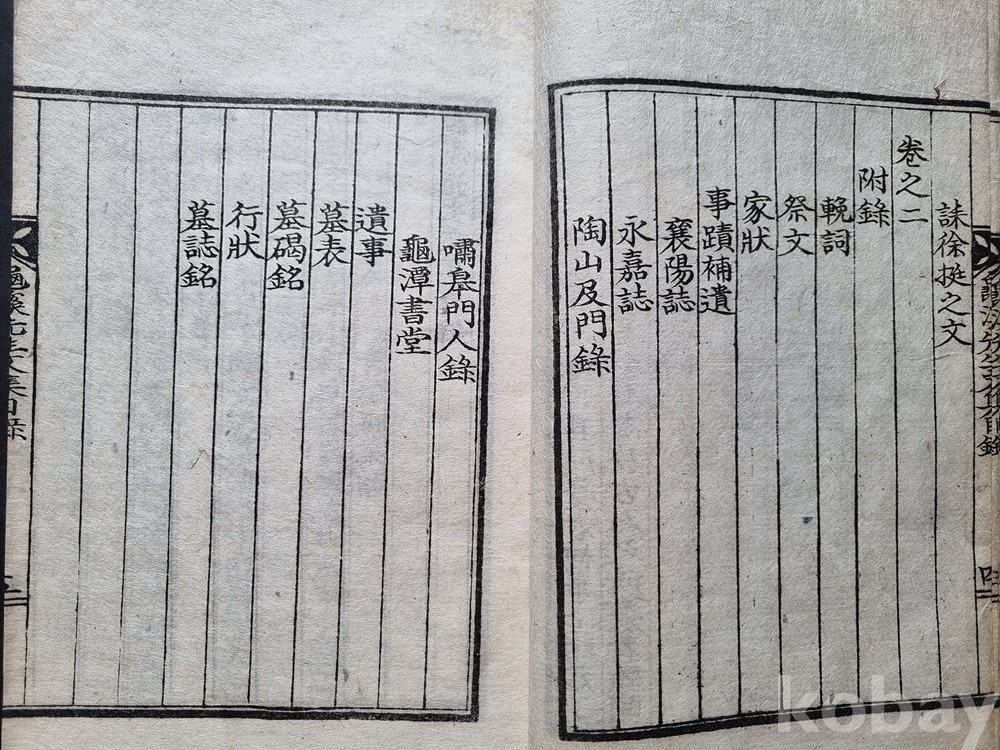 誄徐挺之文
卷之二
附錄
輓詞
祭文
家狀
事蹟補遺
襄陽誌
永嘉誌
陶山及門錄
嘯皋門人錄
龜潭書堂
遺事
墓表
墓碣銘
行狀
墓誌銘
kobay